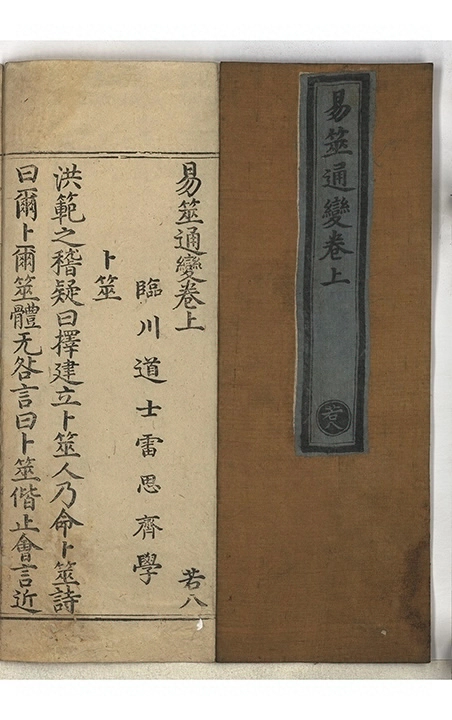 易筮通變卷上
若八
易筮通變卷上
若八
臨川道士雷思齊學
卜筮
洪範之稽疑曰擇建立卜筮人乃命卜筮詩
曰爾卜爾筮體无咎言曰卜筮偕止會言近